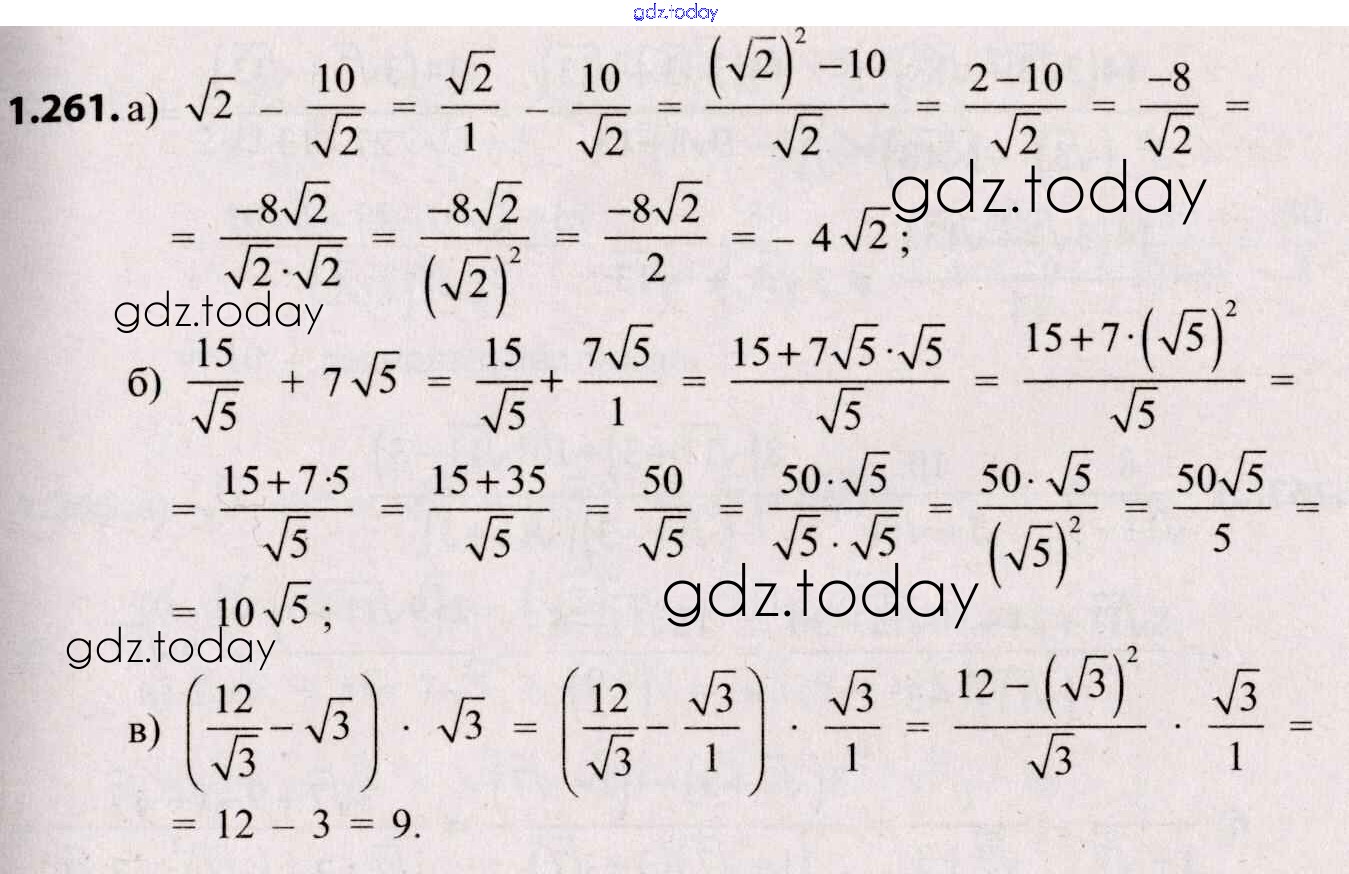 gdz.today
1.261. а) √2 − 10/√2 = √2/1 − 10/√2 = ((√2)² −10)/√2 = (2−10)/√2 = −8/√2 =
gdz.today
= −8√2/(√2·√2) = −8√2/(√2)² = −8√2/2 = − 4√2;
gdz.today
б) 15/√5 + 7√5 = 15/√5 + 7√5/1 = (15+7√5·√5)/√5 = (15+7·(√5)²)/√5 =
= (15+7·5)/√5 = (15+35)/√5 = 50/√5 = 50·√5/(√5·√5) = 50·√5/(√5)² = 50√5/5 =
gdz.today
= 10√5;
gdz.today
в) (12/√3 − √3) · √3 = (12/√3 − √3/1) · √3/1 = (12−(√3)²)/√3 · √3/1 =
= 12 − 3 = 9.